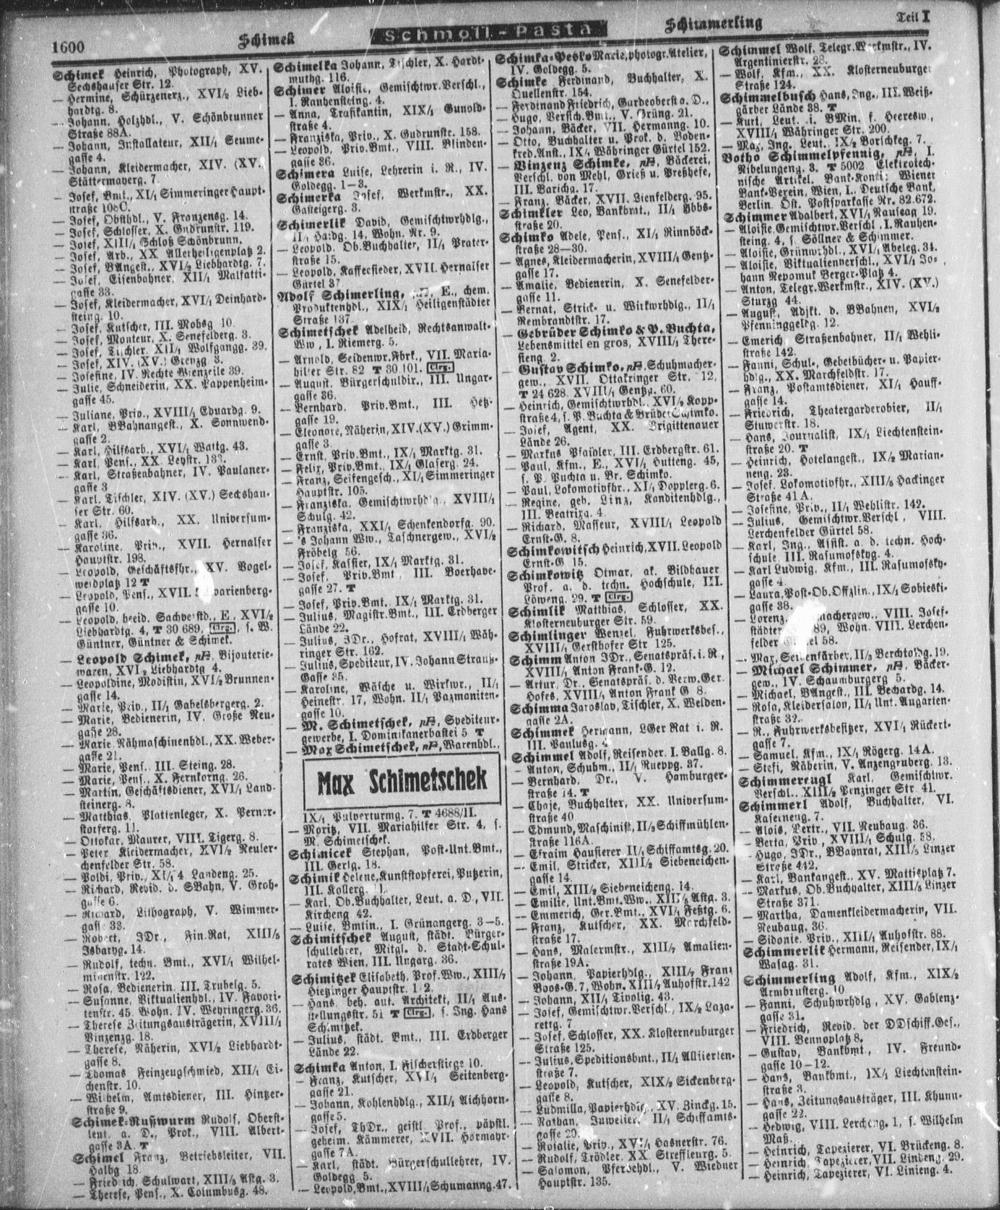 1600
Schimek
Schmoll-Pasta
Schimmerling
Teil I
Schimek Heinrich, Photograph, XV.
Sechshauser Str. 12.
— Hermine, Schürzenerz., XVI/2 Lieb-
hardtg. 8.
— Johann, Holzhdl., V. Schönbrunner
Straße 88A.
— Johann, Installateur, XII/1 Seume-
gasse 4.
— Johann, Kleidermacher, XIV. (XV.)
Stättermayerg. 7
— Josef, Bmt., XI/1 Simmeringer Haupt-
straße 108C.
— Josef, Obsthdl., V. Franzensg. 14.
— Josef, Schlosser, X. Gudrunstr. 119.
— Josef, XIII/1 Schloß Schönbrunn.
— Josef, Arb., XX Allerheiligenplatz 2.
— Josef, BAngest., XVI/2 Liebhardtg. 7.
— Josef, Eisenbahner, XII/1 Malfatti-
gasse 33.
— Josef, Kleidermacher, XVI/1 Deinhard-
steing. 10.
— Josef, Kutscher, III. Mohsg 10.
— Josef, Monteur, X. Senefelderg. 3.
— Josef, Tischler, XII/1 Wolfgangg. 39.
— Josef, XIV. (XV.) Grenzg 3.
— Josefine, IV. Rechte Wienzeile 39.
— Julie, Schneiderin, XX. Pappenheim-
gasse 45.
— Juliane, Priv., XVIII/1 Eduardg. 9.
— Karl, BBahnangest., X. Sonnwend-
gasse 2.
— Karl, Hilfsarb., XVI/1 Wattg. 43.
— Karl, Pens., XX. Leystr.
— Karl, Straßenbahner, IV. Paulaner-
gasse 3
— Karl, Tischler, XIV. (XV.) Sechshau-
ser Str. 60.
— Karl, Hilfsarb., XX. Universum-
gasse 36.
— Karoline, Priv., XVII. Hernalser
Hauptstr. 198.
— Leopold, Geschäftsfhr., XV. Vogel-
weidplatz 12 T
— Leopold, Pens., XVII.
gasse 10.
— Leopold, beeid. Sachverstd., E., XVI/2
Liebhardtg. 4, T 30 689, Clrg., s. W.
Güntner, Güntner & Schimek.
Leopold Schimek, Bijouterie-
waren, XVI/2 Liebhardtg 4.
— Leopoldine, Modistin, XVI/2 Brunnen-
gasse 14.
— Marie, Priv., II/1 Gabelsbergerg. 2.
— Marie, Bedienerin, IV. Große Neu-
gasse 28.
— Marie, Nähmaschinenhdl., XX. Weber-
gasse 21.
— Marie, Pens., III. Steing. 28.
— Marie, Pens., X. Fernkorng. 26.
— Martin, Geschäftsdiener, XVI/1 Land-
steinerg. 8.
— Matthias, Plattenleger, X. Perner-
storferg. 11.
— Ottokar, Maurer, VIII. Tigerg. 8.
— Peter, Kleidermacher, XVI/2 Neuler-
chenfelder Str. 58.
— Poldi, Priv., XI/1 4. Landeng. 25.
— Richard, Revid. d. SBahn, V. Groh-
gasse 6.
— Richard, Lithograph, V. Wimmer-
gasse 33.
— Robert, JDr., Fin.Rat, XIII/5
Isbaryg. 14.
— Rudolf, techn. Bmt., XVI/1 Wilhel-
minenstr. 122.
— Rosa, Bedienerin, III. Trubelg. 5.
— Susanne, Viktualienhdl., IV. Favori-
tenstr. 45. Wohn. IV. Weyringerg. 36.
— Therese Zeitungsausträgerin, XVIII/1
Vinzenzg. 18.
— Therese, Näherin, XVI/2 Liebhardt-
gasse 8.
— Thomas Feinzeugschmied, XII/1 Ei-
chenstr. 10.
— Wilhelm, Amtsdiener, III. Hintzer-
straße 9.
Schimek-Rußwurm Rudolf, Oberst-
leut. a. D., Prok., VIII. Albert-
gasse 3A T
Schimel Franz, Betriebsleiter, VII.
Halbg 18.
— Friedrich, Schulwart, XIII/2 Astg. 3.
— Therese, Pens., X. Columbusg. 48.
Schimelka Johann, Tischler, X. Hardt-
muthg. 116.
Schimer Aloisie, Gemischtwr.Verschl.,
I. Rauhensteing. 4.
— Anna, Trafikantin, XIX/1 Gunold-
straße 4.
— Franziska, Priv., X. Gudrunstr. 158.
— Leopold, Priv.Bmt., VIII. Blinden-
gasse 36.
Schimera Luise, Lehrerin i. R., IV.
Goldegg. 1—3.
Schimerka Josef, Werkmstr., XX.
Gasteigerg. 3.
Schimerlik David, Gemischtwrhdlg.,
II/1 Haidg. 14, Wohn. Nr. 9.
— Leopold, Ob.Buchhalter, II/1 Prater-
straße 15.
— Leopold, Kaffeesieder, XVII. Hernalser
Gürtel 37
Adolf Schimerling, E., chem.
Produktenhdl., XIX. Heiligenstädter
Straße 137
Schimetschek Adelheid, Rechtsanwalt-
Ww., I Riemerg. 5.
— Arnold, Seidenwr.Fbrk., VII. Maria-
hilfer Str. 82 T 30.101. Clrg.
— August, Bürgerschuldir., III. Ungar-
gasse 36.
— Bernhard, Priv.Bmt., III. Hetz-
gasse 19.
— Eleonore, Näherin, XIV. (XV.) Grimm-
gasse 3
— Ernst, Priv.Bmt., IX/1 Marktg. 31.
— Felix, Priv.Bmt., IX/1 Glaserg. 24.
— Franz, Seifengesch., XI/1 Simmeringer
Hauptstr. 105.
— Franziska, Gemischtwrhdlg., XVIII/1
Schulg. 42.
— Franziska, XXI/1 Schenkendorfg. 90.
— 's Johann Ww., Taschnergew., XVI/2
Fröbelg 56.
— Josef, Kassier, IX/1 Marktg. 31.
— Josef, Priv.Bmt., III. Boerhave-
gasse 27. T
— Josef, Priv.Bmt., IX/1 Marktg. 31.
— Julius, Magistr.Bmt., III. Erdberger
Lände 22.
— Julius, JDr., Hofrat, XVIII/1 Wäh-
ringer Str. 162.
— Julius, Spediteur, IV. Johann Strauß-
Gasse 35.
— Karoline, Wäsche u. Wirkwr., II/1
Heinestr. 17, Wohn. II/1 Pazmaniten-
gasse 10.
— M. Schimetschek, Spediteur-
gewerbe, I. Dominikanerbastei 5 T
— Max Schimetschek, Warenhdl.,
Max Schimetschek
IX/1 Pulverturmg. 7. T 4688/II.
— Moritz, VII. Mariahilfer Str. 4, s.
M. Schimetschek.
Schimicek Stephan, Post-Unt.Bmt.,
III. Gerlg. 18.
Schimik Helene, Kunststopferei, Putzerin,
III. Kollerg. 1.
— Karl, Ob.Buchhalter, Leut. a. D., VII.
Kircheng 42.
— Luise, Bmtin., I. Grünangerg. 3—5.
Schimitschek August, städt. Bürger-
schullehrer, Mitgl. d. Stadt-Schul-
rates Wien, III. Ungarg. 36.
Schimitzek Elisabeth, Prof.Ww., XIII/1
Hietzinger Hauptstr. 1/2.
— Hans, beh. aut. Architekt, II/1 Aus-
stellungsstr. 51 T Clrg., s. Ing. Hans
Schimitzek.
— Julius, städt. Bmt., III. Erdberger
Lände 22.
Schimka Anton, I. Fischerstiege 10.
— Franz, Kutscher, XVI/1 Seitenberg-
gasse 21.
— Johann, Kohlenhdlg., XII/1 Aichhorn-
gasse 5.
— Josef, ThDr., geistl. Prof., päpstl.
geheim. Kämmerer, XVII. Hormayr-
gasse 7A.
— Karl, städt. Bürgerschullehrer, IV.
Goldegg 5.
— Leopold, Bmt., XVIII/1 Schumanng. 47.
Schimka-Peblo Marie, photogr. Atelier,
IV. Goldegg. 5.
Schimke Ferdinand, Buchhalter, X.
Quellenstr. 154.
— Ferdinand Friedrich, Gardeoberst a. D.,
— Hugo, Versich.Bmt., V. Grüng. 21.
— Johann, Bäcker, VII. Hermanng. 10.
— Otto, Buchhalter u. Prok. d. Boden-
kred.Anst., IX/1 Währinger Gürtel 152.
— Vinzenz Schimke, Bäckerei,
Verschl. von Mehl, Gries u. Preßhefe,
III. Barichg. 17.
— Franz, Bäcker, XVII. Lienfelderg. 95.
Schimkler Leo, Bankbmt., II/1 Ybbs-
straße 20.
Schimko Adele, Pens., XI/1 Rinnböck-
straße 28—30.
— Agnes, Kleidermacherin, XVIII/1 Gentz-
gasse 17.
— Amalie, Bedienerin, X. Senefelder-
gasse 11.
— Bernat, Strick- u. Wirkwrhdlg., II/1
Rembrandtstr. 17.
— Gebrüder Schimko & P. Buchta,
Lebensmittel en gros, XVIII/1 There-
sieng. 2.
— Gustav Schimko, Schuhmacher-
gew., XVII. Ottakringer Str. 12,
T 24 628. XVIII/1 Gentzg. 60.
— Heinrich, Gemischtwrhdl., XVI/2 Kopp-
straße 4, s. P. Buchta & Brüder Schimko.
— Josef, Agent, XX. Brigittenauer
Lände 26.
— Markus, Pfaidler, III. Erdbergstr. 61.
— Paul, Kfm., E., XVI/1 Hutteng. 45,
s. P. Buchta u. Br. Schimko.
— Paul, Lokomotivfhr., XI/1 Dopplerg. 6.
— Regine, geb. Linz, Kanditenhdlg.,
III. Beatrixg. 4.
— Richard, Masseur, XVIII/1 Leopold
Ernst-G. 8.
Schimkowitsch Heinrich, XVII. Leopold
Ernst-G 15.
Schimkowitz Otmar, ak. Bildhauer
Prof. a. d. techn. Hochschule, III.
Löweng. 29. T Clrg.
Schimlik Matthias, Schlosser, XX.
Klosterneuburger Str. 59.
Schimlinger Wenzel, Fuhrwerksbes.,
XVIII/1 Gersthofer Str 125.
Schimm Anton JDr., Senatspräs. i. R.,
XVIII/1 Anton Frank-G. 12.
— Artur, Dr., Senatspräs. d. Verw.Ger.
Hofes, XVIII/1 Anton Frank G 8.
Schimma Jaroslav, Tischler, X. Welden-
gasse 2A.
Schimmek Hermann, LGer Rat i. R.
III. Paulusg. 4
Schimmel Adolf, Reisender, I. Ballg. 8.
— Anton, Schuhm., II/2 Rueppg. 37.
— Bernhard, Dr., V. Hamburger-
straße 14. T
— Chaje, Buchhalter, XX. Universum-
straße 40
— Edmund, Maschinist, II/2 Schiffmühlen-
straße 116A.
— Efraim Hausierer II/1 Schiffamtsg. 20.
— Emil, Stricker, XIII/1 Siebeneichen-
gasse 14.
— Emil, XIII/2 Siebeneicheng. 14.
— Emilie, Unt.Bmt.Ww., XIII/2 Astg. 3.
— Emmerich, Ger.Bmt., XVI/1 Feßtg. 6.
— Franz, Kutscher, XX. Marchfeld-
straße 17.
— Hans, Malermstr., XIII/1 Amalien-
straße 19A.
— Johann, Papierhdlg., XIII/2 Franz
Boos-G. 7, Wohn. XIII/1 Auhofstr. 142
— Johann, XII/1 Tivolig. 43.
— Josef, Gemischtwr.Verschl., IX/2 Laza-
rettg. 7
— Josef, Schlosser, XX. Klosterneuburger
Straße 125.
— Julius, Speditionsbmt., II/1 Alliierten-
straße 7.
— Leopold, Kutscher, XIX/2 Sickenberg-
gasse 8.
— Ludmilla, Papierhdlg., XV. Zinckg. 15.
— Nathan, Juwelier, II/1 Schiffamts-
gasse 20.
— Rosalie, Priv., XVI/1 Hasnerstr. 76.
— Rudolf, Trödler, XX. Streffleurg. 5.
— Salomon, Pferdehdl., V. Wiedner
Hauptstr. 135.
Schimmel Wolf, Telegr.Werkmstr., IV.
Argentinierstr. 28.
— Wolf, Kfm., XX. Klosterneuburger
Straße 124.
Schimmelbusch Hans, Ing., III. Weiß-
gärber Lände 38. T
— Kurt, Leut. i. BMin. f. Heeresw.,
XVIII/1 Währinger Str. 200.
— Max, Ing. Leut., IX/2 Borschkeg. 7.
Botho Schimmelpfennig, I.
Nibelungeng. 8. T 5002 Elektrotech-
nische Artikel. Bank-Konti: Wiener
Bank-Verein, Wien, I., Deutsche Bank,
Berlin. Öst. Postsparkasse Nr. 82.672.
Schimmer Adalbert, XVI/1 Nauseag 19.
— Aloisie, Gemischtwr.Verschl., I. Rauhen-
steing. 4, s. Söllner & Schimmer.
— Aloisie, Grünwrhdl., XVI/1 Abeleg. 31.
— Aloisie, Viktualienverschl., XVI/1 Jo-
hann Nepomuk Berger-Platz 4.
— Anton, Telegr.Werkmstr., XIV. (XV.)
Sturzg 44.
— August, Adjkt. d. BBahnen, XVI/2
Pfenninggeldg. 12.
— Emerich, Straßenbahner, II/1 Wehli-
straße 142.
— Fanni, Schul-, Gebetbücher- u. Papier-
hdlg., XX. Marchfeldstr. 17.
— Franz, Postamtsdiener, XI/1 Hauff-
gasse 14.
— Friedrich, Theatergarderobier, II/1
Stuwerstr. 18.
— Hans, Journalist, IX/1 Liechtenstein-
straße 20. T
— Heinrich, Hotelangest., IX/2 Marian-
neng. 23.
— Josef, Lokomotivfhr., XIII/2 Hackinger
Straße 41A.
— Josefine, Priv., II/1 Wehlistr. 142.
— Julius, Gemischtwr.Verschl., VIII.
Lerchenfelder Gürtel 58.
— Karl, Ing., Assist. a. d. techn. Hoch-
schule, III. Rasumofskyg. 4.
— Karl Ludwig, Kfm., III. Rasumofsky-
gasse 4
— Laura, Post-Ob.Offzlin., IX/1 Sobieski-
gasse 38.
— Loren
städter 89, Wohn. VIII. Lerchen-
felder Gürtel 58.
— Max, Seidenfärber, II/1 Berchtoldg. 19.
— Michael Schimmer, Bäcker-
gew., IV. Schaumburgerg 5.
— Michael, BAngest., III. Bechardg. 14.
— Rosa, Kleidersalon, II/1 Unt. Augarten-
straße 32.
— R., Fuhrwerksbesitzer, XVI/1 Rückert-
gasse 7.
— Samuel, Kfm., IX/1 Rögerg. 14A.
— Stefi, Näherin, V. Anzengruberg. 13.
Schimmereugl Karl, Gemischtwr.
Verschl., XIII/2 Penzinger Str. 41.
Schimmerl Adolf, Buchhalter, VI.
Kaserneng. 7.
— Alois, Vertr., VII. Neubaug. 36.
— Berta, Priv., XVIII/1 Schulg. 58.
— Hugo, JDr., BBaurat, XIII/1 Linzer
Straße 442.
— Karl, Bankangest., XV. Mattisplatz 7.
— Markus, Ob.Buchhalter, XIII/2 Linzer
Straße 371.
— Martha, Damenkleidermacherin, VII.
Neubaug. 36.
— Sidonie, Priv., XIII/1 Auhofstr. 88.
Schimmerlik Hermann, Reisender, IX/1
Wasag. 31.
Schimmerling Adolf, Kfm., XIX/2
Armbrusterg. 10
— Fanni, Schuhwrhdlg., XV. Gablenz-
gasse 31.
— Friedrich, Revid. der DDSchiff.Ges.,
VIII. Bennoplatz 8.
— Gustav, Bankbmt., IV. Freund-
gasse 10—12.
— Hans, Bankbmt., IX/1 Liechtenstein-
straße 3.
— Hans, Zeitungsausträger, III. Khunn-
gasse 22.
— Hedwig, VIII. Lercheng. 1, s. Wilhelm
Matz.
— Heinrich, Tapezierer, VI. Brückeng. 8.
— Heinrich, Tapezierer, VII. Lindeng. 29.
— Heinrich, Tapezierer, VI. Linieng. 4.